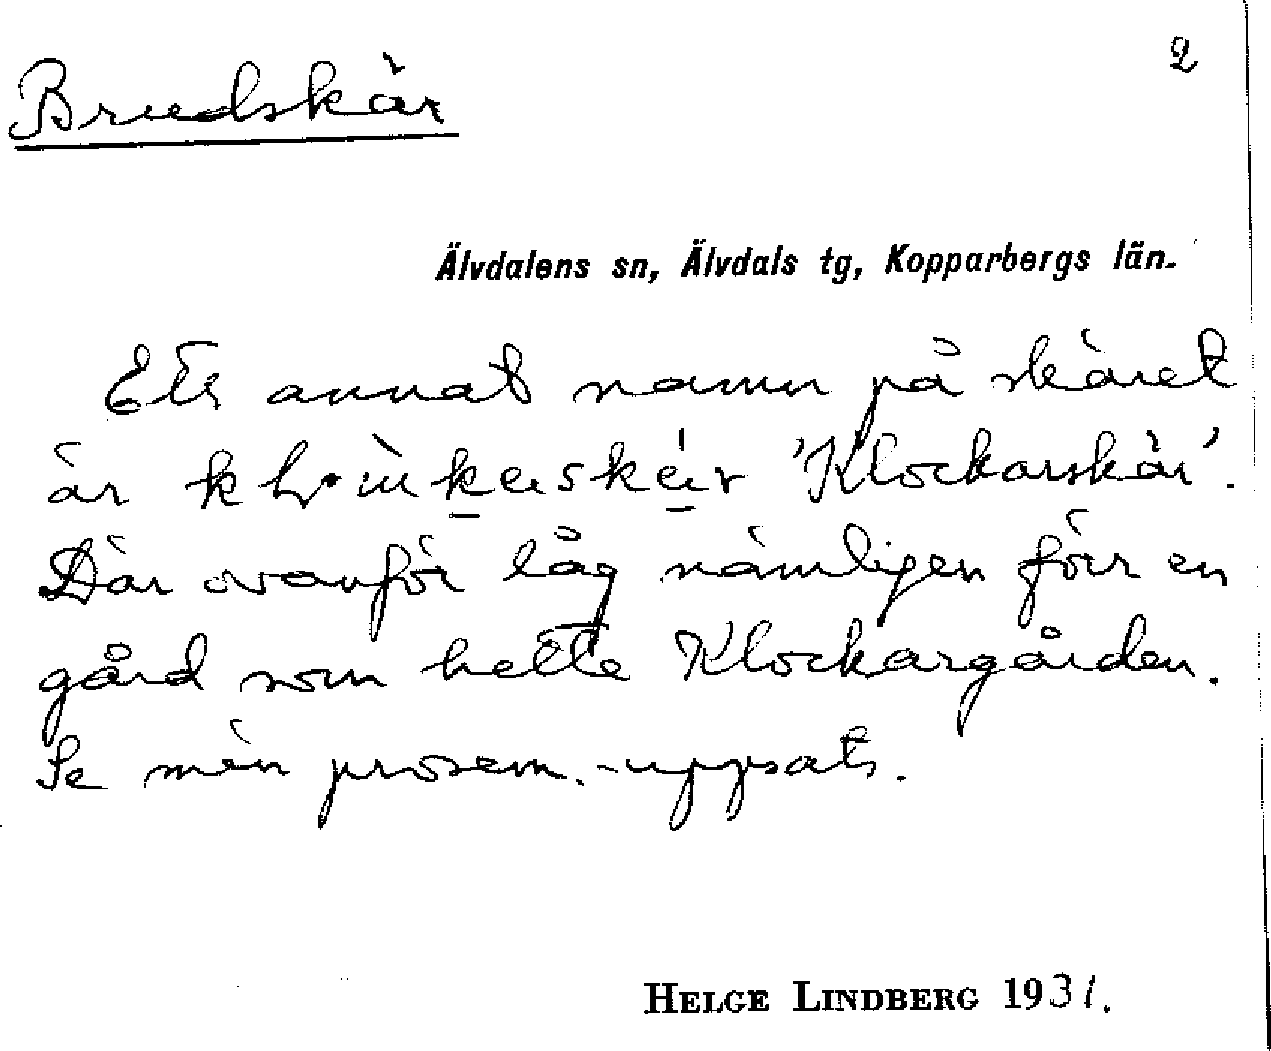 2
Brudskär
Älvdalens sn, Älvdals tg, Kopparbergs län.
Ett annat namn på skäret
är 'Klockarskär'.
Där ovanför låg nämligen förr en
gård som hette Klockargården.
Se min prosem.-uppsats.
HELGE LINDBERG 1931.